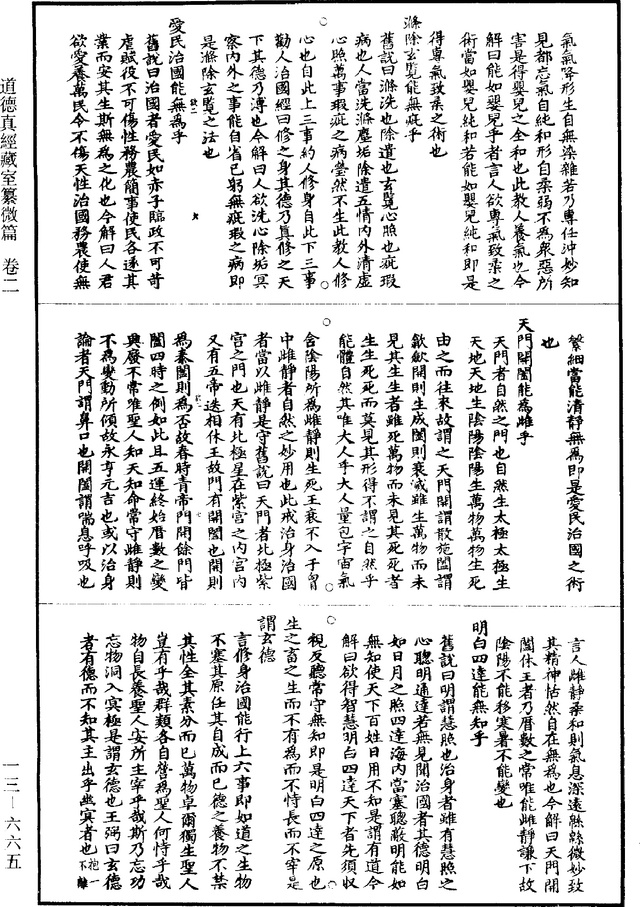 道德真經藏室纂微篇　卷二
一三—六六五
氣氣降形生自無染雜若乃專任沖妙知
見都忘氣自純和形自柔弱不為衆惡所
害是得嬰兒之全和也此教人養氣也今
解曰能如嬰兒乎者言人欲專氣致柔之
術當如嬰兒純和若能如嬰兒純和即是
得專氣致柔之術也
滌除玄覽能無疵乎
舊說曰滌洗也除遣也玄覽心照也疵瑕
病也人當洗滌塵垢除遣五情內外清虛
心照萬事瑕疵之病瑩然不生此教人修
心也自此上三事約人修身自此下三事
勸人治國經曰修之身其德乃真修之天
下其德乃溥也今解曰人欲洗心除垢冥
察內外之事能自省已躬無疵瑕之病即
是滌除玄覽之法也
愛民治國能無為乎
舊說曰治國者愛民如赤子臨政不可苛
虐賦役不可傷性務農簡事使民各遂其
業而安其生斯無為之化也今解曰人君
欲愛養萬民令不傷天性治國務農使無
繁細當能清靜無為即是愛民治國之術
也
天門開闔能為雌乎
天門者自然之門也自然生太極太極生
天地天地生陰陽陰陽生萬物萬物生死
由之而往來故謂之天門開謂散施闔謂
歛歛開則生成闔則衰滅雖生萬物而未
見其生生者雖死萬物而未見其死死者
生生死死而莫見其形得不謂之自然乎
能體自然其唯大人乎大人量包宇宙氣
含陰陽所為雌靜則生死王衰不入于胷
中雌靜者自然之妙用也此戒治身治國
者當以雌靜是守舊說曰天門者北極紫
宮之門也天有北極星在紫宮之內宮內
又有五帝迭相休王故門有開闔也開則
為泰闔則為否故春時青帝門開餘門皆
闔四時之例如此且五運終始曆數之變
興廢不常唯聖人知天知命常守雌靜則
不為變動所傾故永亨元吉也或以治身
論者天門謂鼻口也開闔謂喘息呼吸也
言人雌靜柔和則氣息深遠緜緜微妙致
其精神怗然自在無為也今解曰天門開
闔休王者乃曆數之常唯能雌靜謙下故
陰陽不能移寒暑不能變也
明白四達能無知乎
舊說曰明謂慧照也治身者雖有慧照之
心聰明通達若無見聞治國者其德明白
如日月之照四達海內當塞聰蔽明能如
無知使天下百姓日用不知是謂有道今
解曰欲得智慧明白四達天下者先須収
視反聽常守無知即是明白四達之原也
生之畜之生而不有為而不恃長而不宰是
謂玄德
言修身治國能行上六事即如道之生物
不塞其原任其自成而已德之養物不禁
其性全其素分而已萬物卓爾獨生聖人
豈有乎哉群類各自營為聖人何恃乎哉
物自長養聖人安所主宰乎哉斯乃忘功
忘物洞入冥極是謂玄德也王弼曰玄德
者有德而不知其主出乎幽冥者也抱一不離